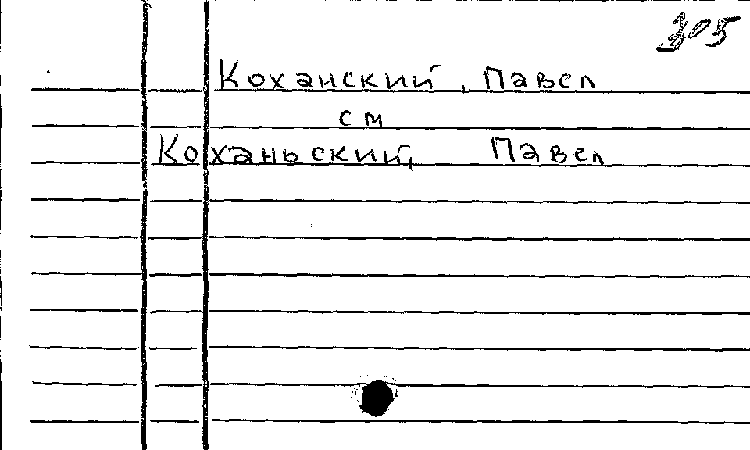 305
Коханский, Павел
см
Коханьский, Павел